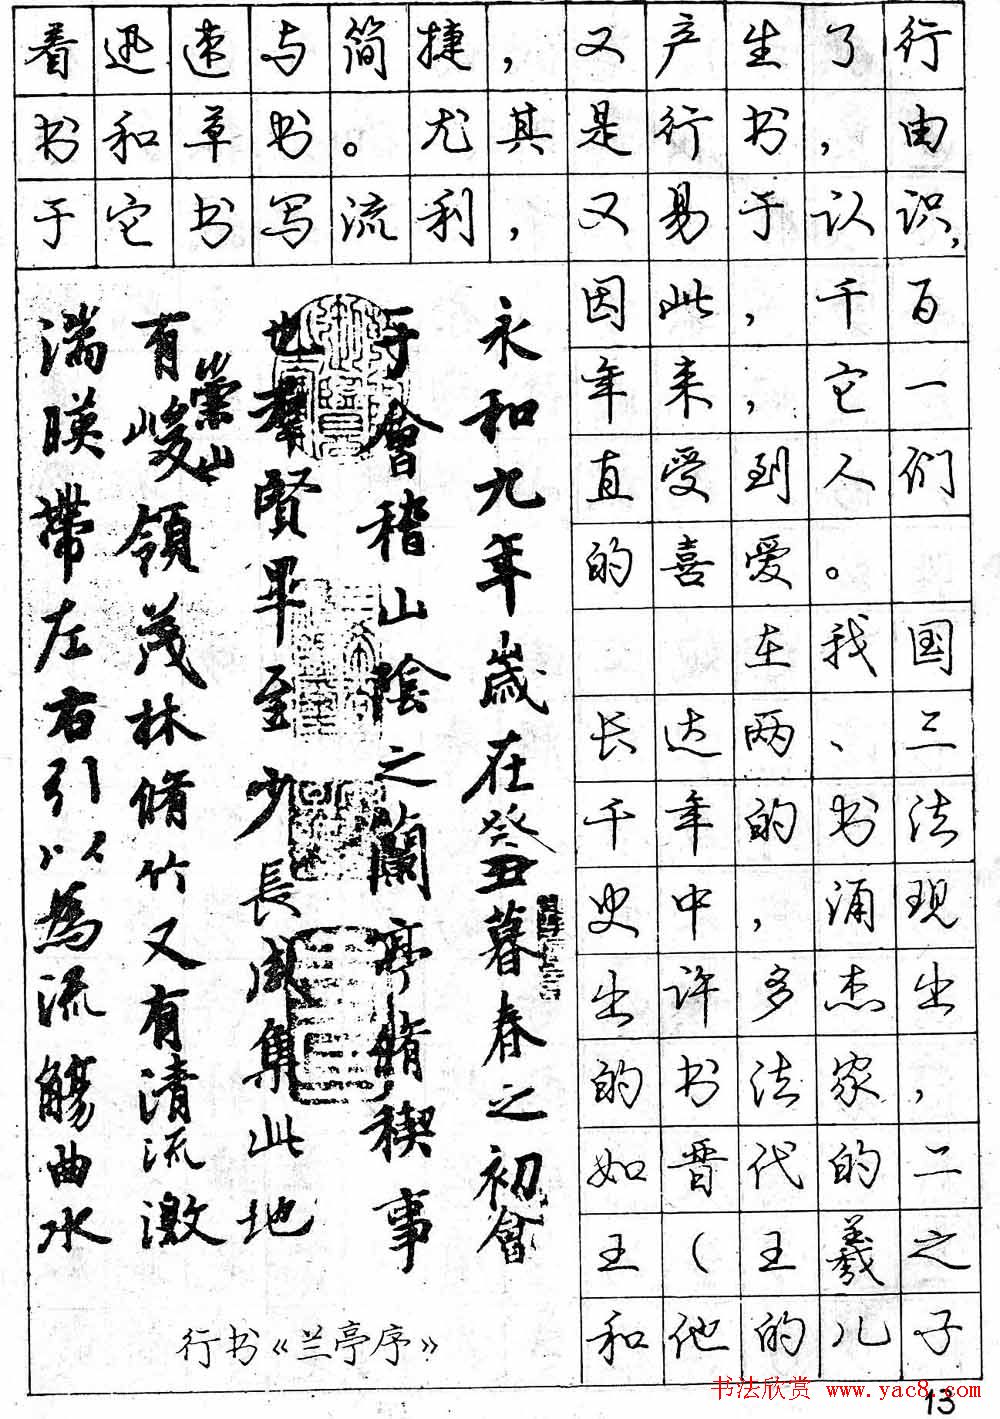 着迅速与简捷，又产生了行
书和草书。尤其是行书，由
于它书写流利，又易于认识，
因此，千百
年来，它一
直受到人们
的喜爱。
在我国
长达两、三
千年的书法
史中，涌现
出许多杰出
的书法家，
如晋代的二
王（王羲之
和他的儿子
永和九年歲在癸丑暮春之初會
于會稽山陰之蘭亭脩稧事
也羣賢畢至少長咸集此地
有崇山峻領茂林脩竹又有清流激
湍暎帶左右引以為流觴曲水
行书《兰亭序》
书法欣赏 www.yac8.com
13